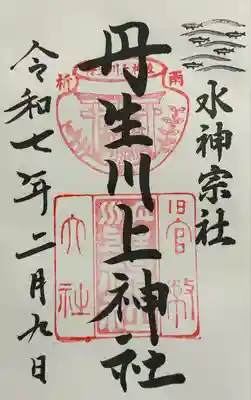 水神宗社
丹生川上神社
令和七年二月九日
雨
祈
旧官幣
大社